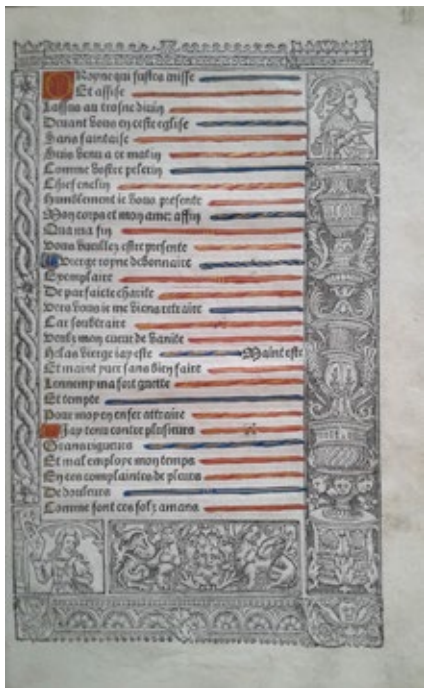 O Royne qui fustes misse
Et assise
Lassus au trosne diuin
Deuant vous en ceste eglise
Sans faintaise
Suis venu a ce matin
Comme vostre pelerin
Chief enclin
Humblement ie vous presente
Mon corps et mon ame: affin
Qua ma fin
Vous vueillez estre presente
Vierge royne debonnaire
Exemplaire
De parfaicte charite
Vers vous ie me viens retraire
Car soubtraire
Veulx mon cueur de vanite
Helas vierge iay este Maint este
Et maint yuer sans bien faire
Lennemy ma fort guette
Et tempte
Pour moy en enfer attraire
Jay tenu contre plusieurs
Grans rigueurs
Et mal employe mon temps
En ces complaintes de pleurs
De douleurs
Comme font ces folz amans